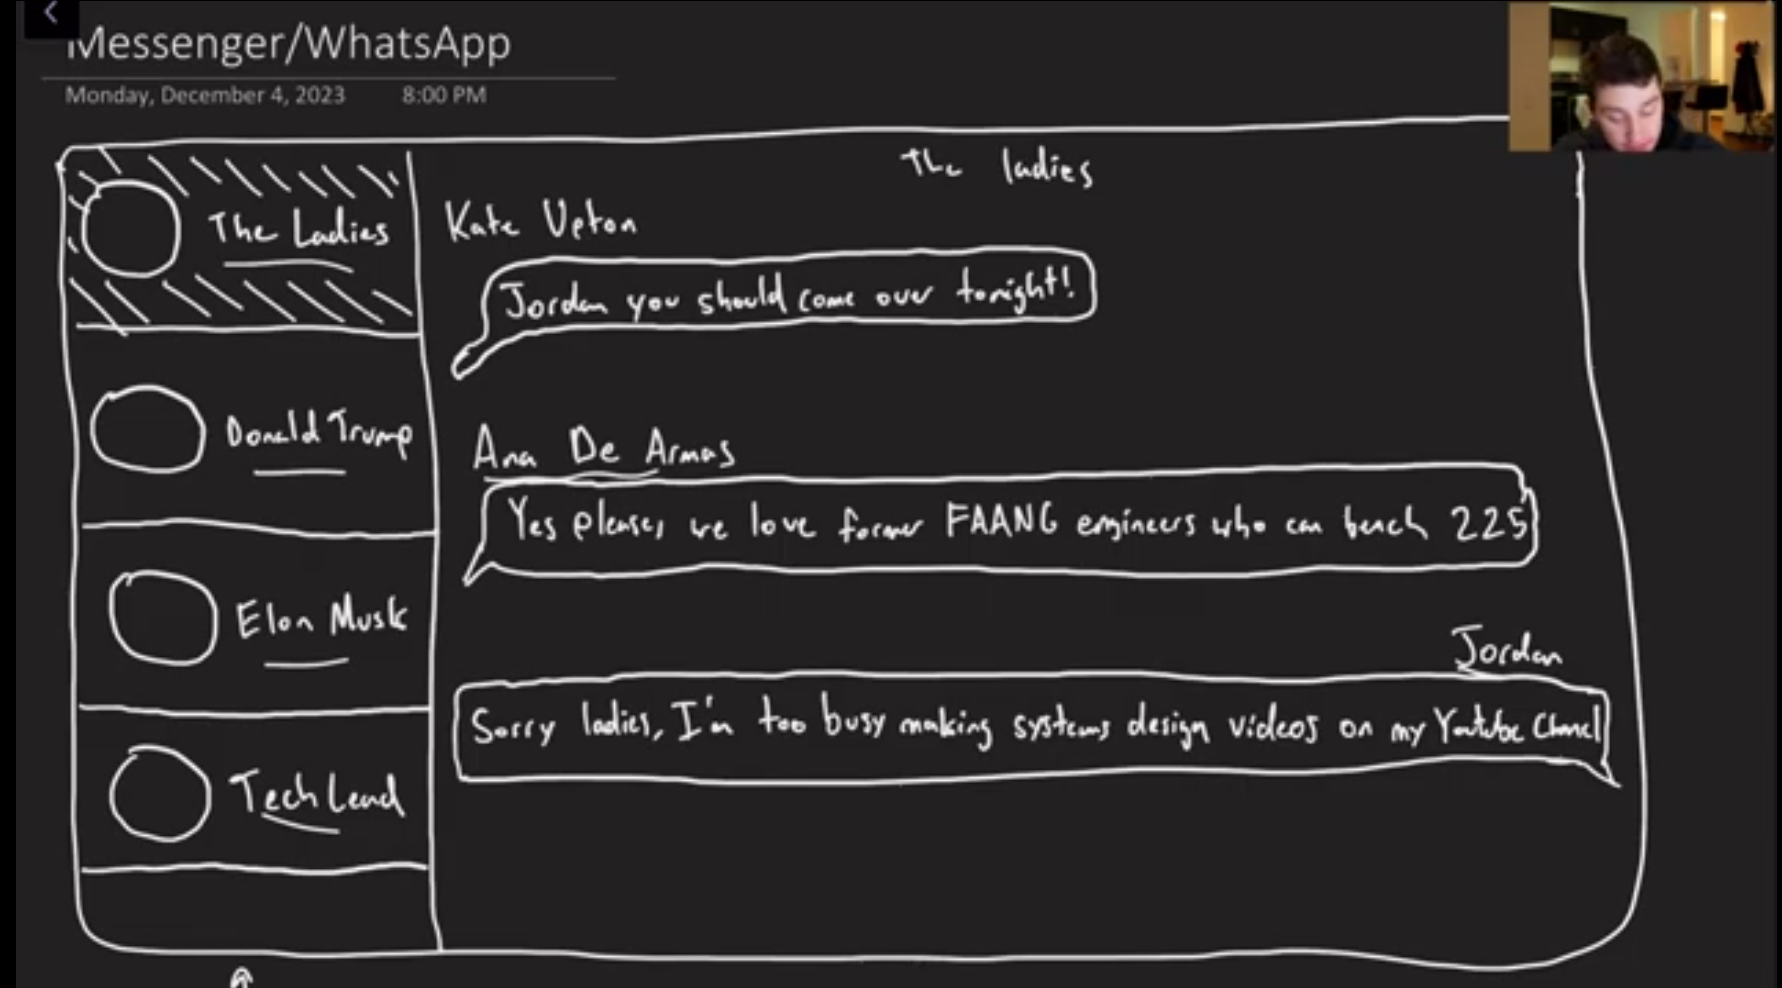 Messenger/WhatsApp
Monday, December 4, 2023 8:00 PM
The Ladies
Donald Trump
Elon Musk
Tech Lead
The ladies
Kate Upton
Jordan you should come over tonight!
Ana De Armas
Yes please, we love former FAANG engineers who can bench 225
Jordan
Sorry ladies, I'm too busy making systems design videos on my Youtube Channel